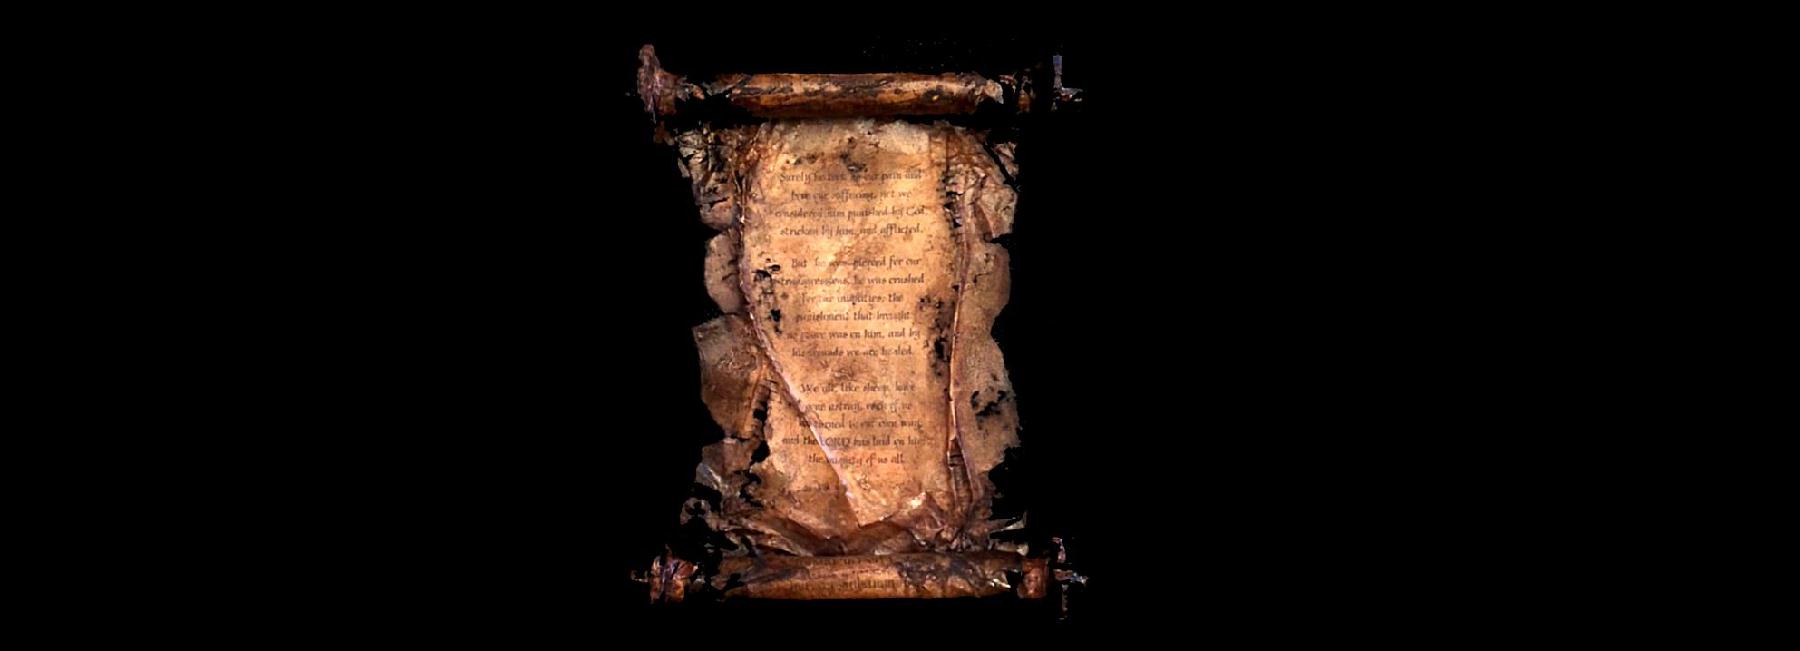 Surely he took up our pain and
bore our suffering, yet we
considered him punished by God,
stricken by him, and afflicted.
But he was pierced for our
transgressions, he was crushed
for our iniquities; the
punishment that brought
us peace was on him, and by
his wounds we are healed.
We all, like sheep, have
gone astray, each of us
has turned to our own way;
and the LORD has laid on him
the iniquity of us all.